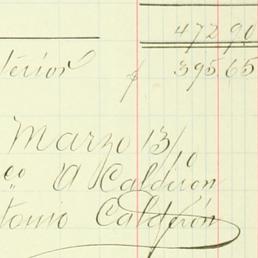 472,90
terior $ 395,65
Marzo 13/10
co A Calderon
tonio Calderón